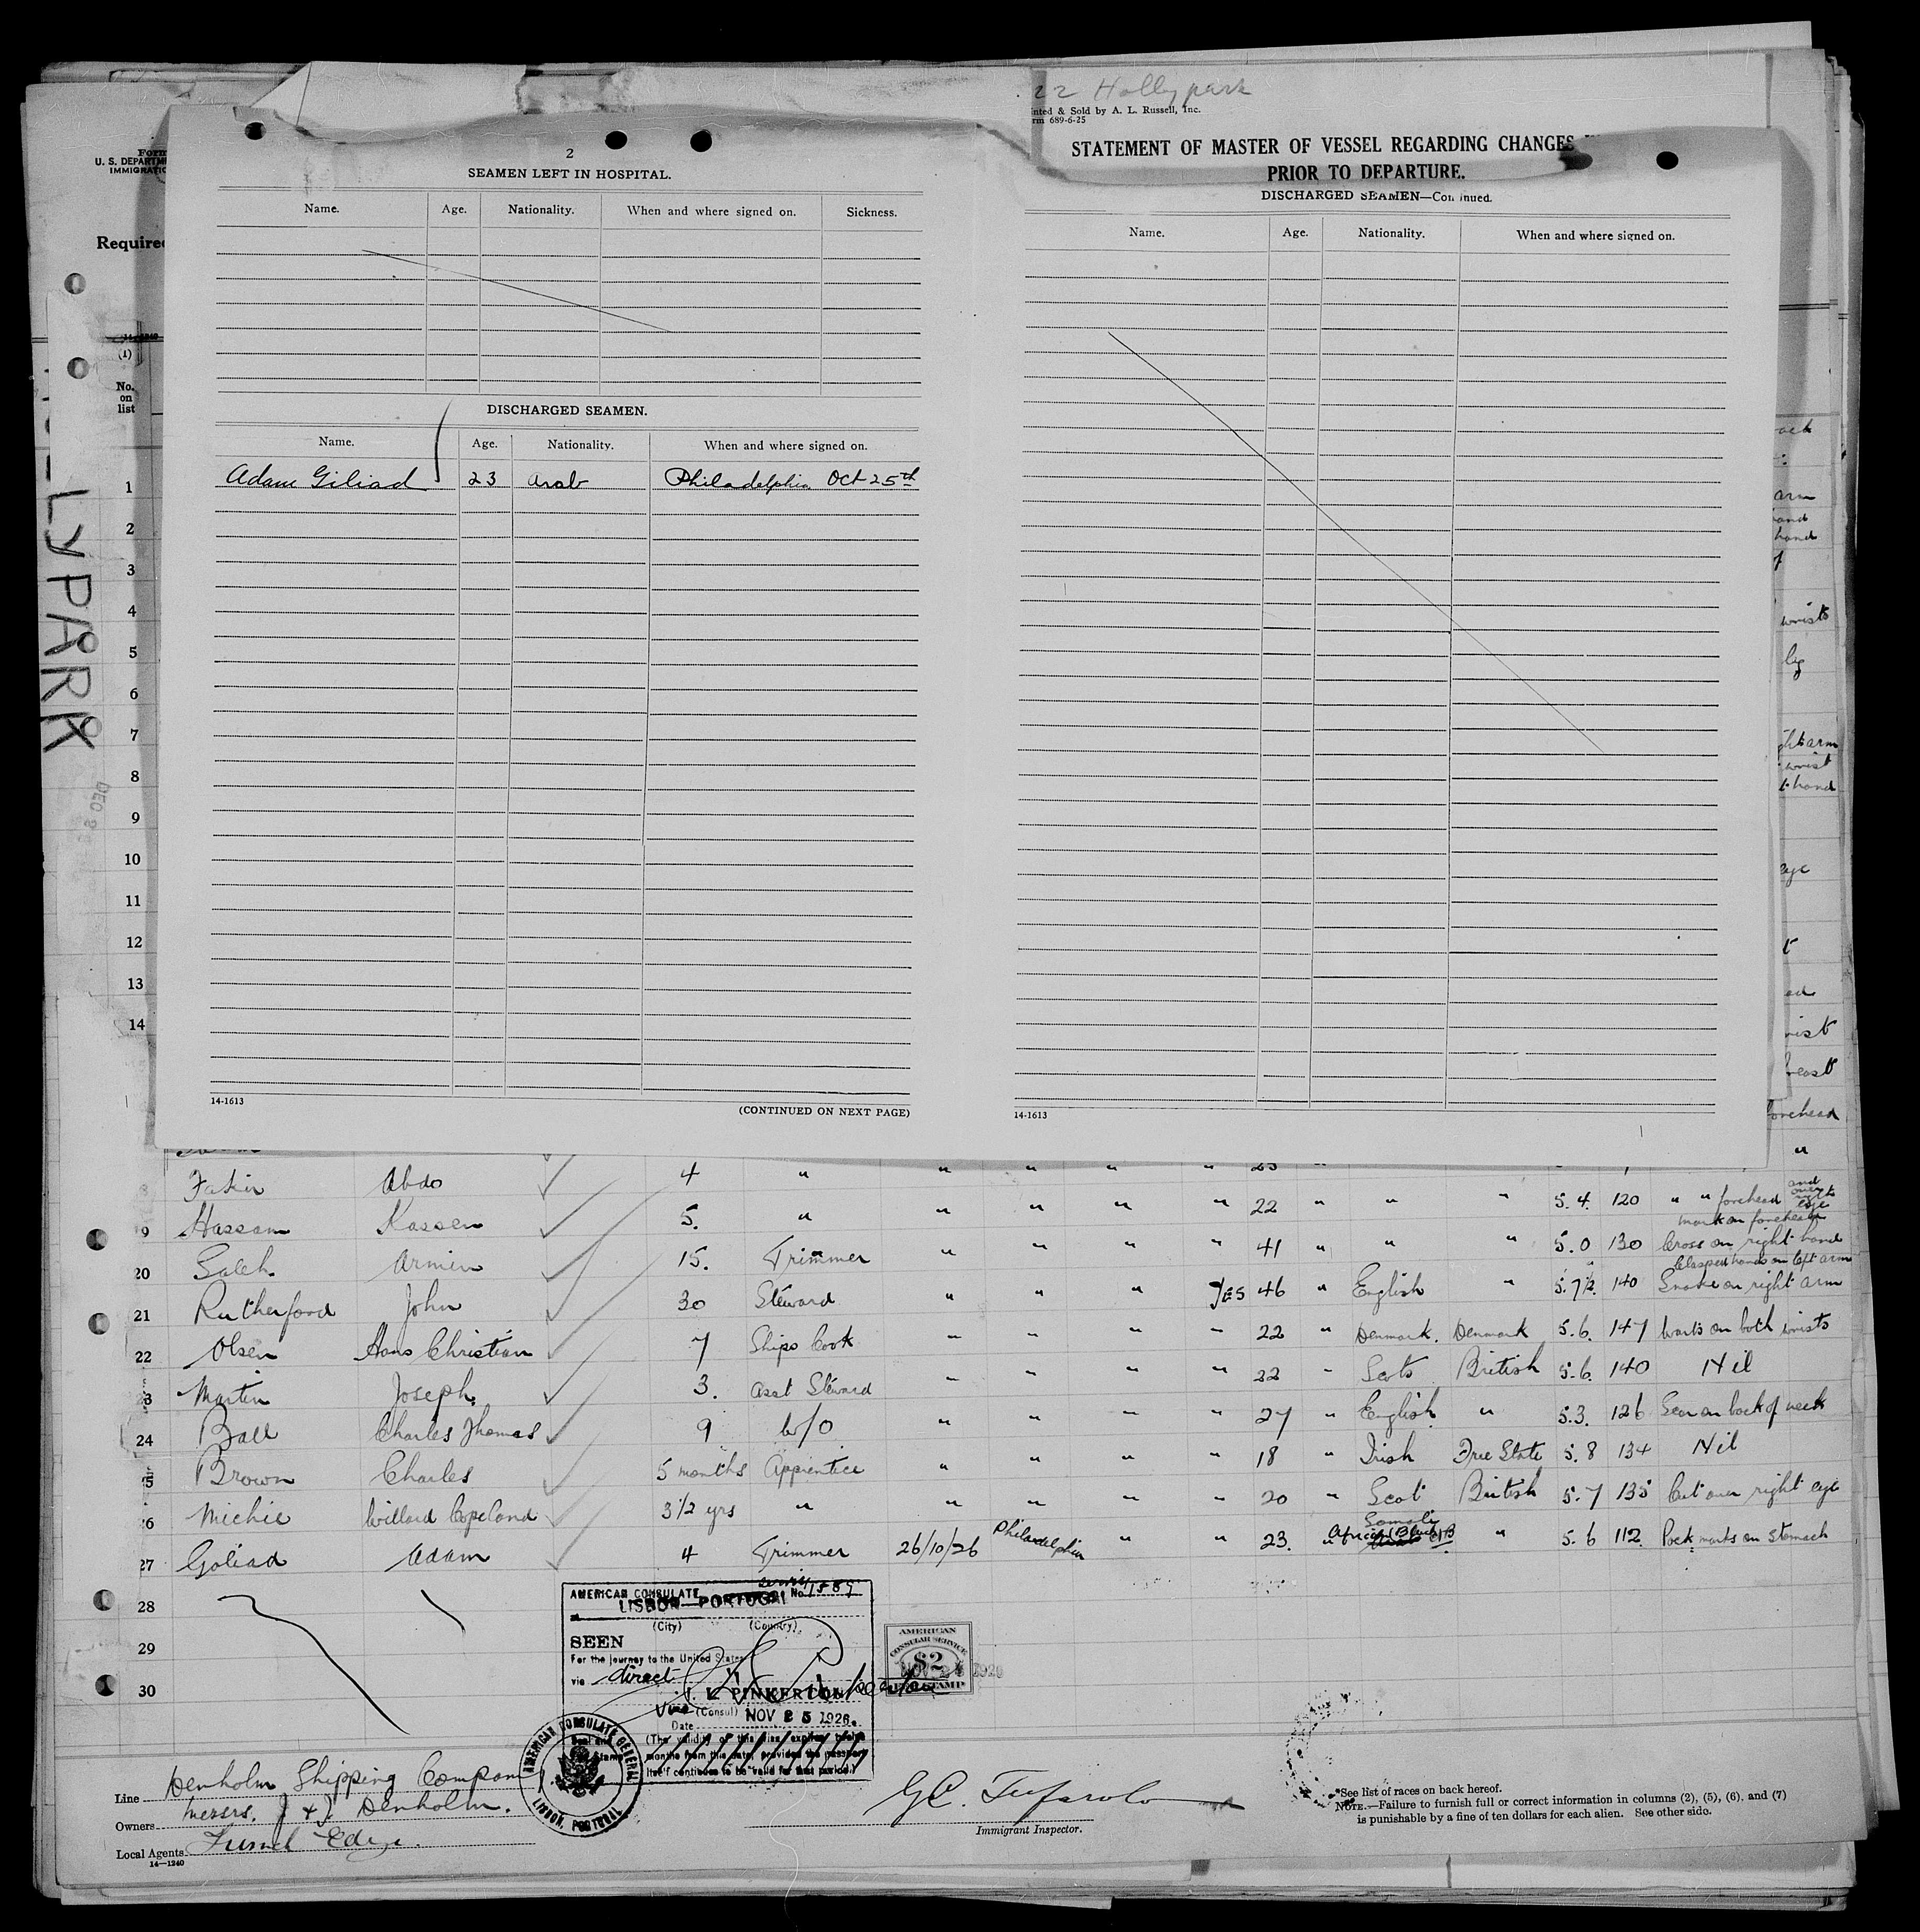 22 Hollypark
nted & Sold by A. L. Russell, Inc.
rm 689-6-25
STATEMENT OF MASTER OF VESSEL REGARDING CHANGES
PRIOR TO DEPARTURE.
DISCHARGED SEAMEN—Continued.
Name. Age. Nationality. When and where signed on.
14-1613
Form
U. S. DEPARTM
IMMIGRATIO
Required
(1)
No.
on
list
LY PARK
2
SEAMEN LEFT IN HOSPITAL.
Name. Age. Nationality. When and where signed on. Sickness.
DISCHARGED SEAMEN.
Name. Age. Nationality. When and where signed on.
Adam Giliad 23 Arab Philadelphia Oct 25th
14-1613
(CONTINUED ON NEXT PAGE)
1
2
3
4
5
6
7
8
9
10
11
12
13
14
arm
hand
hand
wrists
leg
wrist
hand
eye
forehead
"
8 Fakir Abdo 4 " " " " " 23 "
9 Hassam Kassen 5. " " " " " 22 " " " 5.4. 120 " " forehead and over right eye
20 Saleh Armin 15. Trimmer " " " " 41 " " " 5.0 130 mark on forehead Cross on right hand
21 Rutherford John 30 Steward " " " Yes 46 " English " 5.7½. 140 Clasped hands on left arm Snake on right arm
22 Olsen Hans Christian 7 Ships Cook " " " " 22 " Denmark. Denmark 5.6. 147 Warts on both wrists
23 Martin Joseph. 3. Asst Steward " " " " 22 " Scots British 5.6. 140 Nil
24 Ball Charles Thomas 9 W/O " " " " 27 " English. " 5.3. 126 Scar on back of neck
25 Brown Charles 5 months Apprentice " " " " 18 " Irish Free State 5.8 134 Nil
26 Michie Willard Copeland 3 1/2 yrs " " " " " 20 " Scot British 5.7 135 Cut over right eye
27 Goliad Adam 4 Trimmer 26/10/26 Philadelphia " " 23. " Somali African (Black) " 5.6 112. Pock marks on Stomach
28
29
30
AMERICAN CONSULATE
No.
LISBON—PORTUGAL
(City) (Country)
SEEN
For the journey to the United States
via direct
PINKERTON
Vice (Consul)
Date NOV 25 1926.
(The validity of this visa expires twelve
months from this date, provided the passport
itself continues to be valid for that period.)
AMERICAN CONSULATE GENERAL
LISBON, PORTUGAL
AMERICAN
CONSULAR SERVICE
$2
FEE STAMP
Line Denholm Shipping Company
Owners Messrs. J & J Denholm.
Local Agents
14—1240
Immigrant Inspector.
*See list of races on back hereof.
NOTE.—Failure to furnish full or correct information in columns (2), (5), (6), and (7)
is punishable by a fine of ten dollars for each alien. See other side.